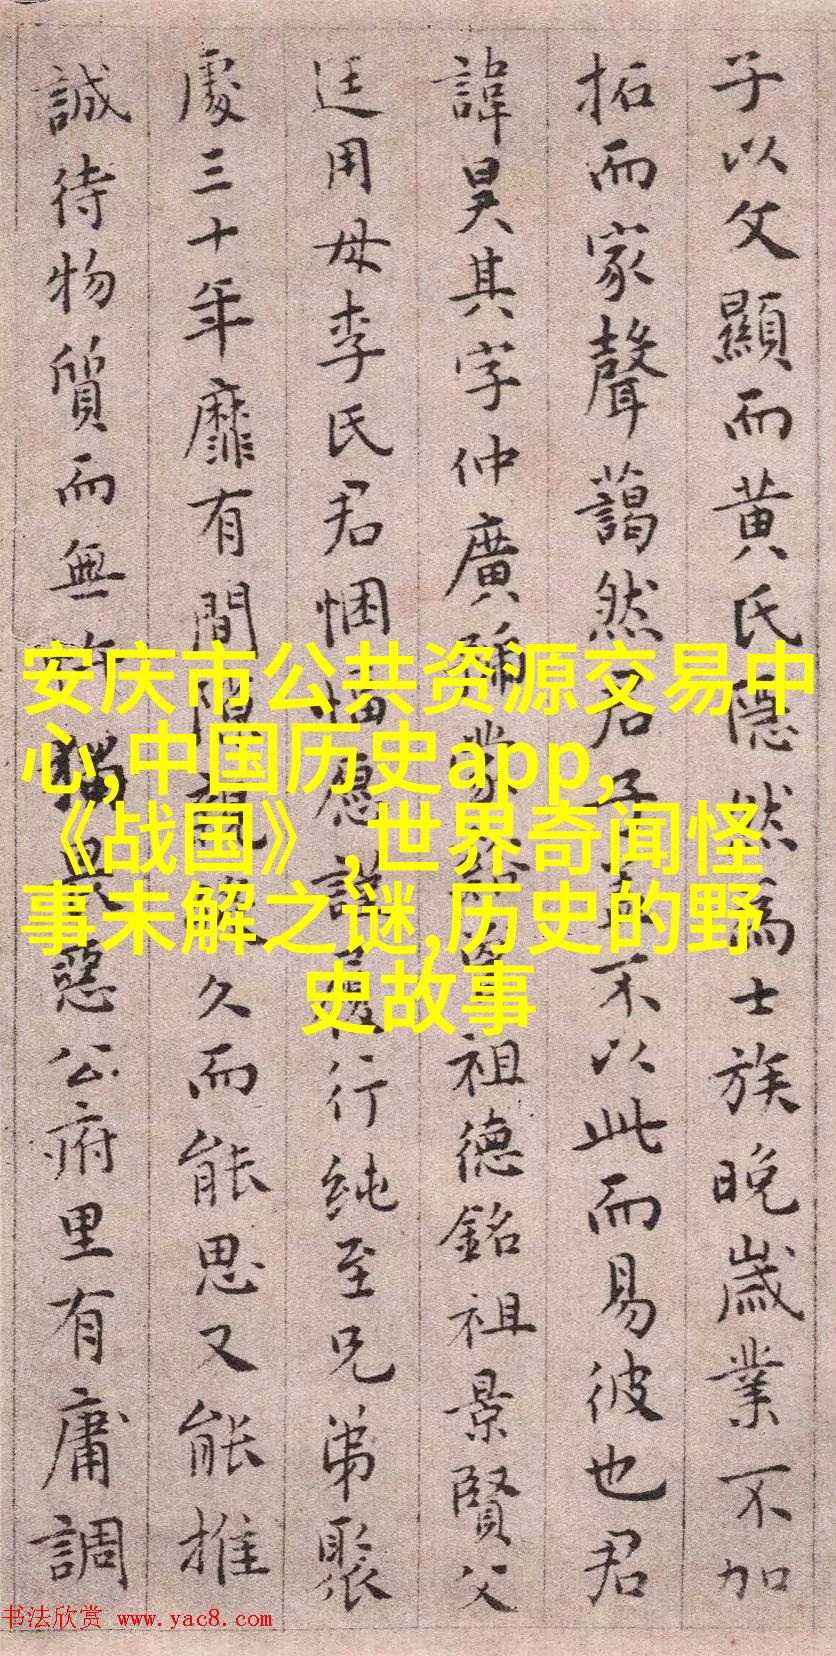 子以父顯而黄氏隱然為士族晚歲業不加
拓而家聲藹然君子不以此而易彼也君
諱昊其字仲廣祖德銘祖景賢父
廷用母李氏君悃愊愿謹行純至兄弟聚
處三十年靡有間久而能思又能推
誠待物質而無惡公府里有庸調
安庆市公共资源交易中
心,中国历史app,
《战国》,世界奇闻怪
事未解之谜,历史的野
史故事
书法欣赏 www.yac8.com